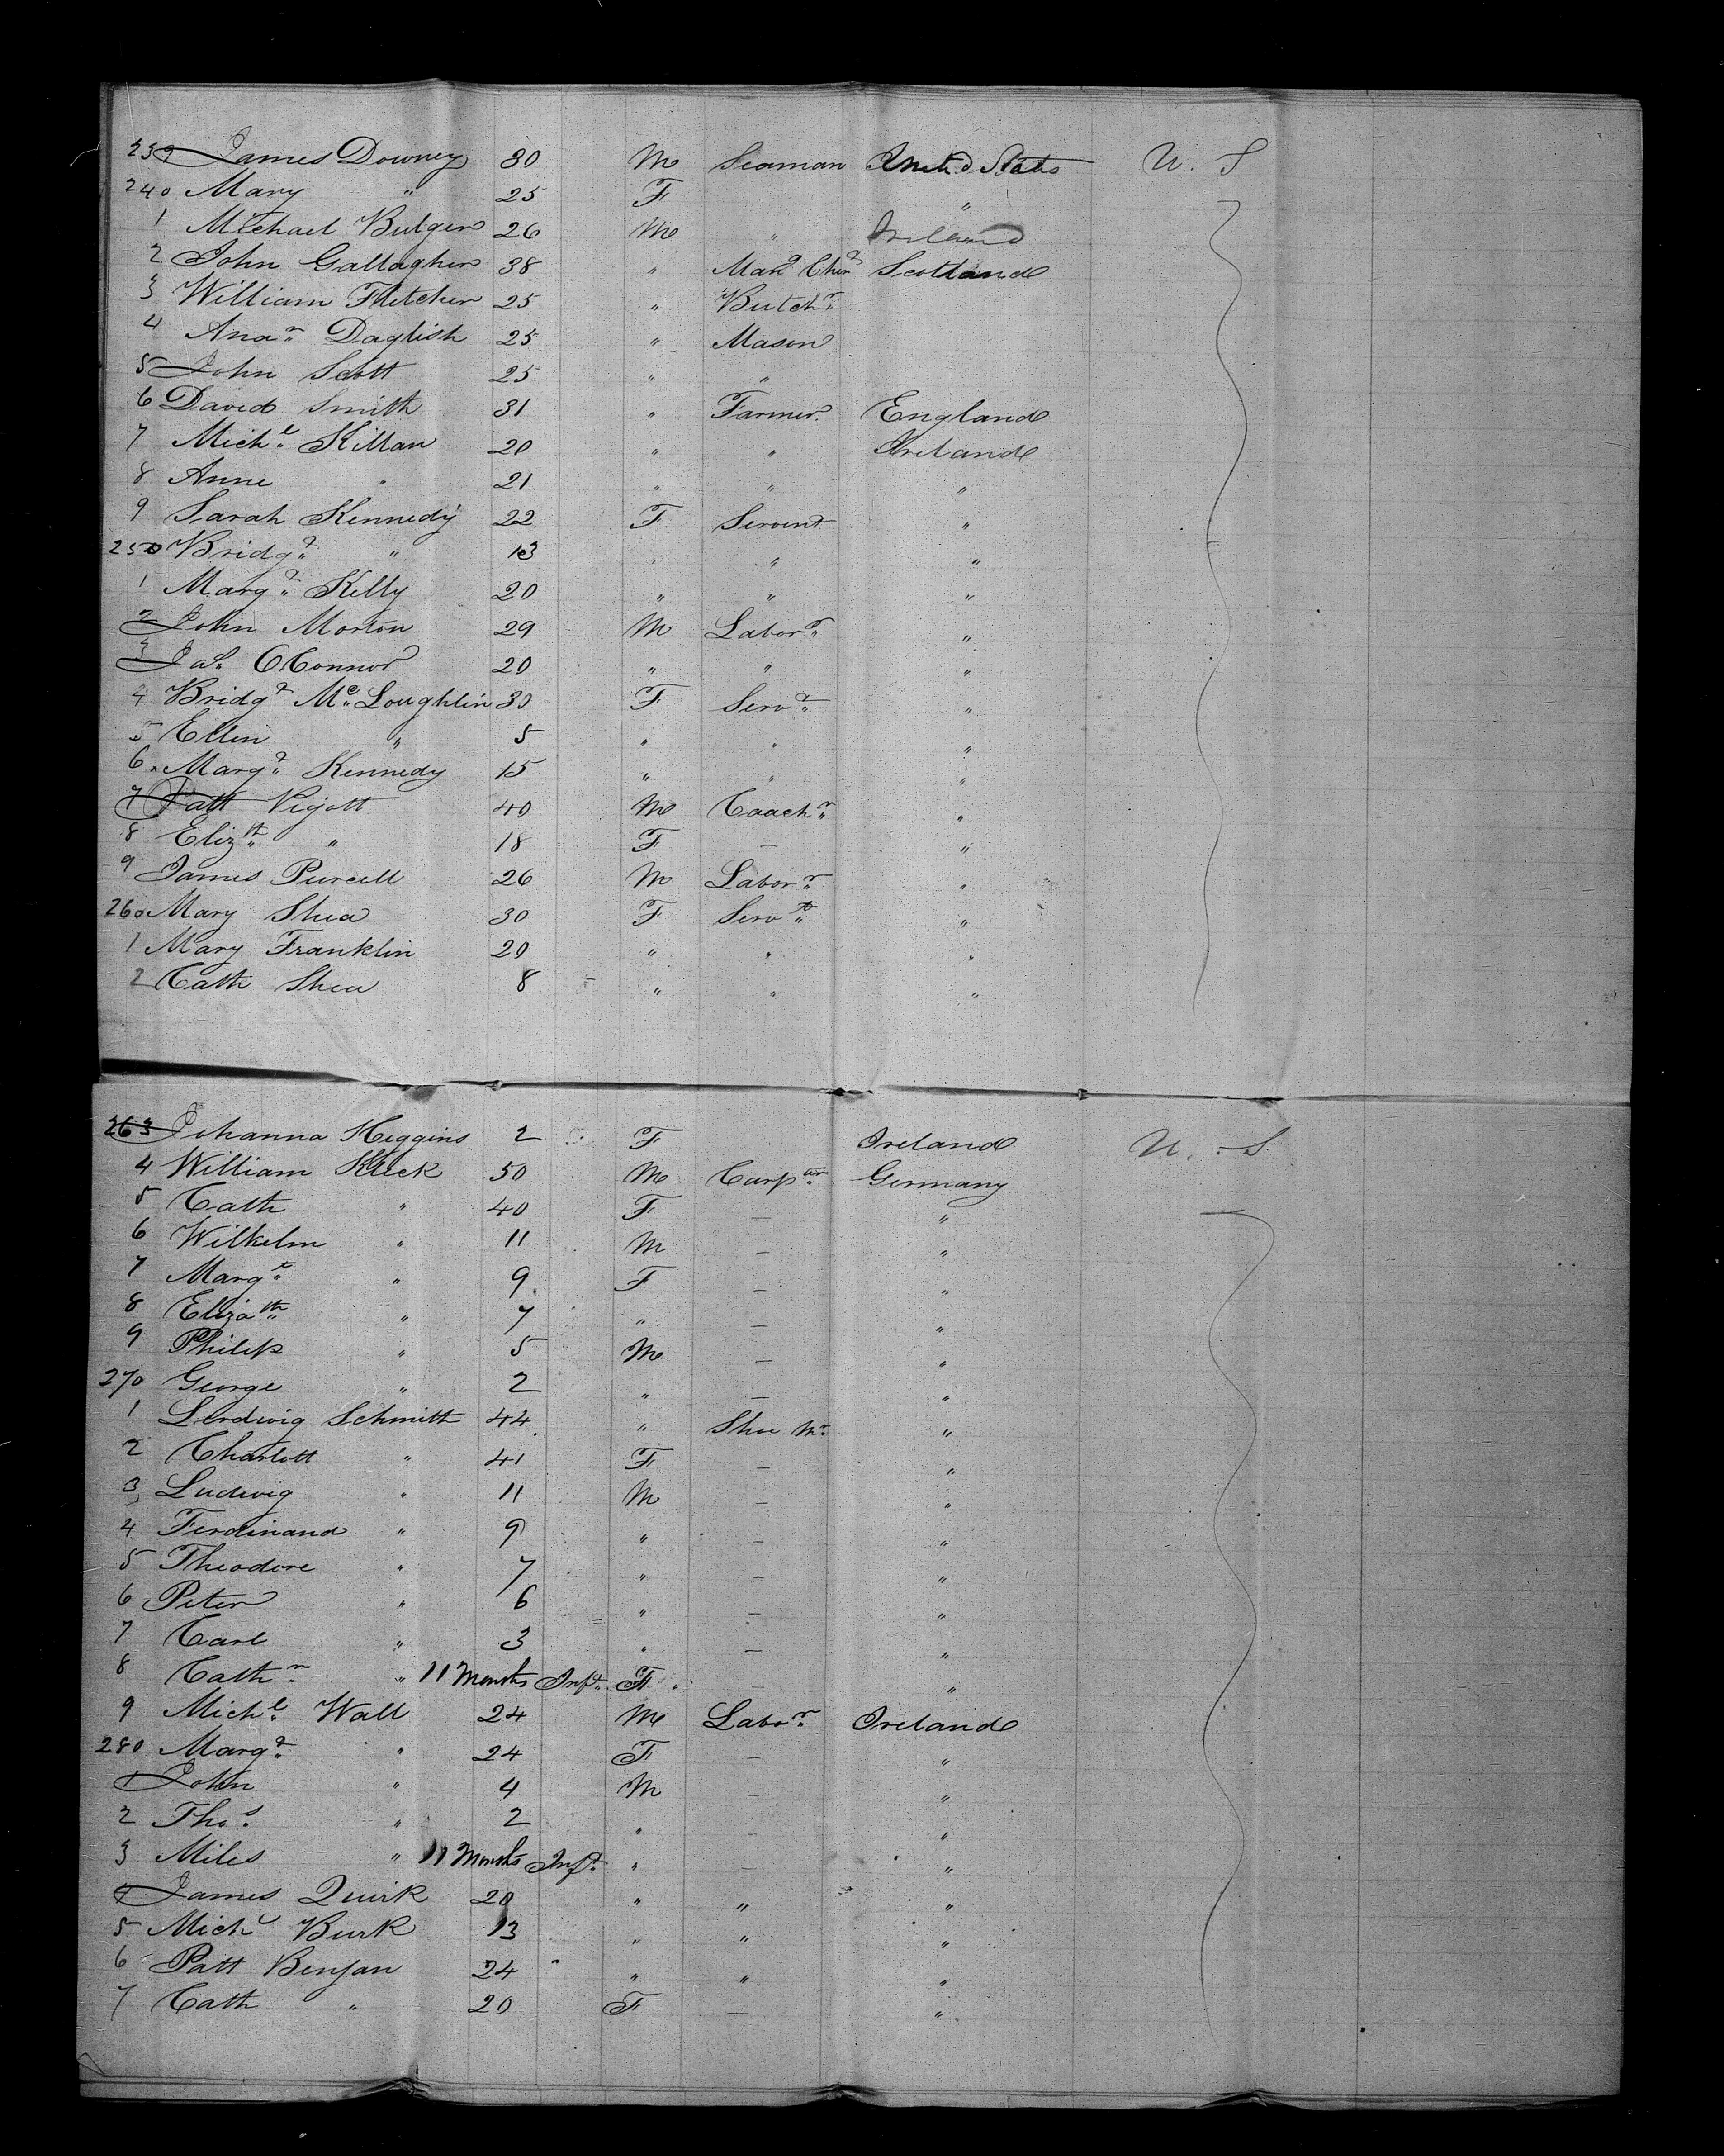 239 James Downey 30 M Seaman United States U. S
240 Mary " 25 F "
1 Michael Bulger 26 M " Ireland
2 John Gallagher 38 " Scotland
3 William Fletcher 25 " Butchr
4 Anar Daglish 25 " Mason
5 John Scott 25 " "
6 David Smith 31 " Farmer England
7 Michl Killan 20 " " Ireland
8 Anne " 21 " " "
9 Sarah Kennedy 22 F Servent "
250 Bridgt " 13 " " "
1 Margt Kelly 20 " " "
2 John Morton 29 M Labor "
3 Jas OConnor 20 " " "
4 Bridgt Mc Loughlin 30 F Servt "
5 Ellen " 5 " " "
6 Margt Kennedy 15 " " "
7 Patt Pigott 40 M Coachr "
8 Elizth " 18 F – "
9 James Purcell 26 M Labor "
260 Mary Shea 30 F Servt "
1 Mary Franklin 20 " " "
2 Cath Shea 8 " " "
263 Johanna Higgins 2 F – Ireland U. S.
4 William Kleck 50 M Carpter Germany
5 Cath " 40 F – "
6 Wilhelm " 11 M – "
7 Margt " 9 F – "
8 Elizath " 7 " – "
9 Philip " 5 M – "
270 George " 2 " – "
1 Lerdwig Schmitt 44 " Shoe Mr "
2 Charlott " 41 F – "
3 Ludwig " 11 M – "
4 Ferdinand " 9 " – "
5 Theodore " 7 " – "
6 Peter " 6 " – "
7 Carl " 3 " – "
8 Cathn " 11 Months Inft F – "
9 Michl Wall 24 M Labor Ireland
280 Margt " 24 F – "
1 John " 4 M – "
2 Thos " 2 " – "
3 Miles " 11 Months Inft " – "
4 James Quirk 20 " " "
5 Michl Burk 13 " " "
6 Patt Benjan 24 " " "
7 Cath " 20 F – "